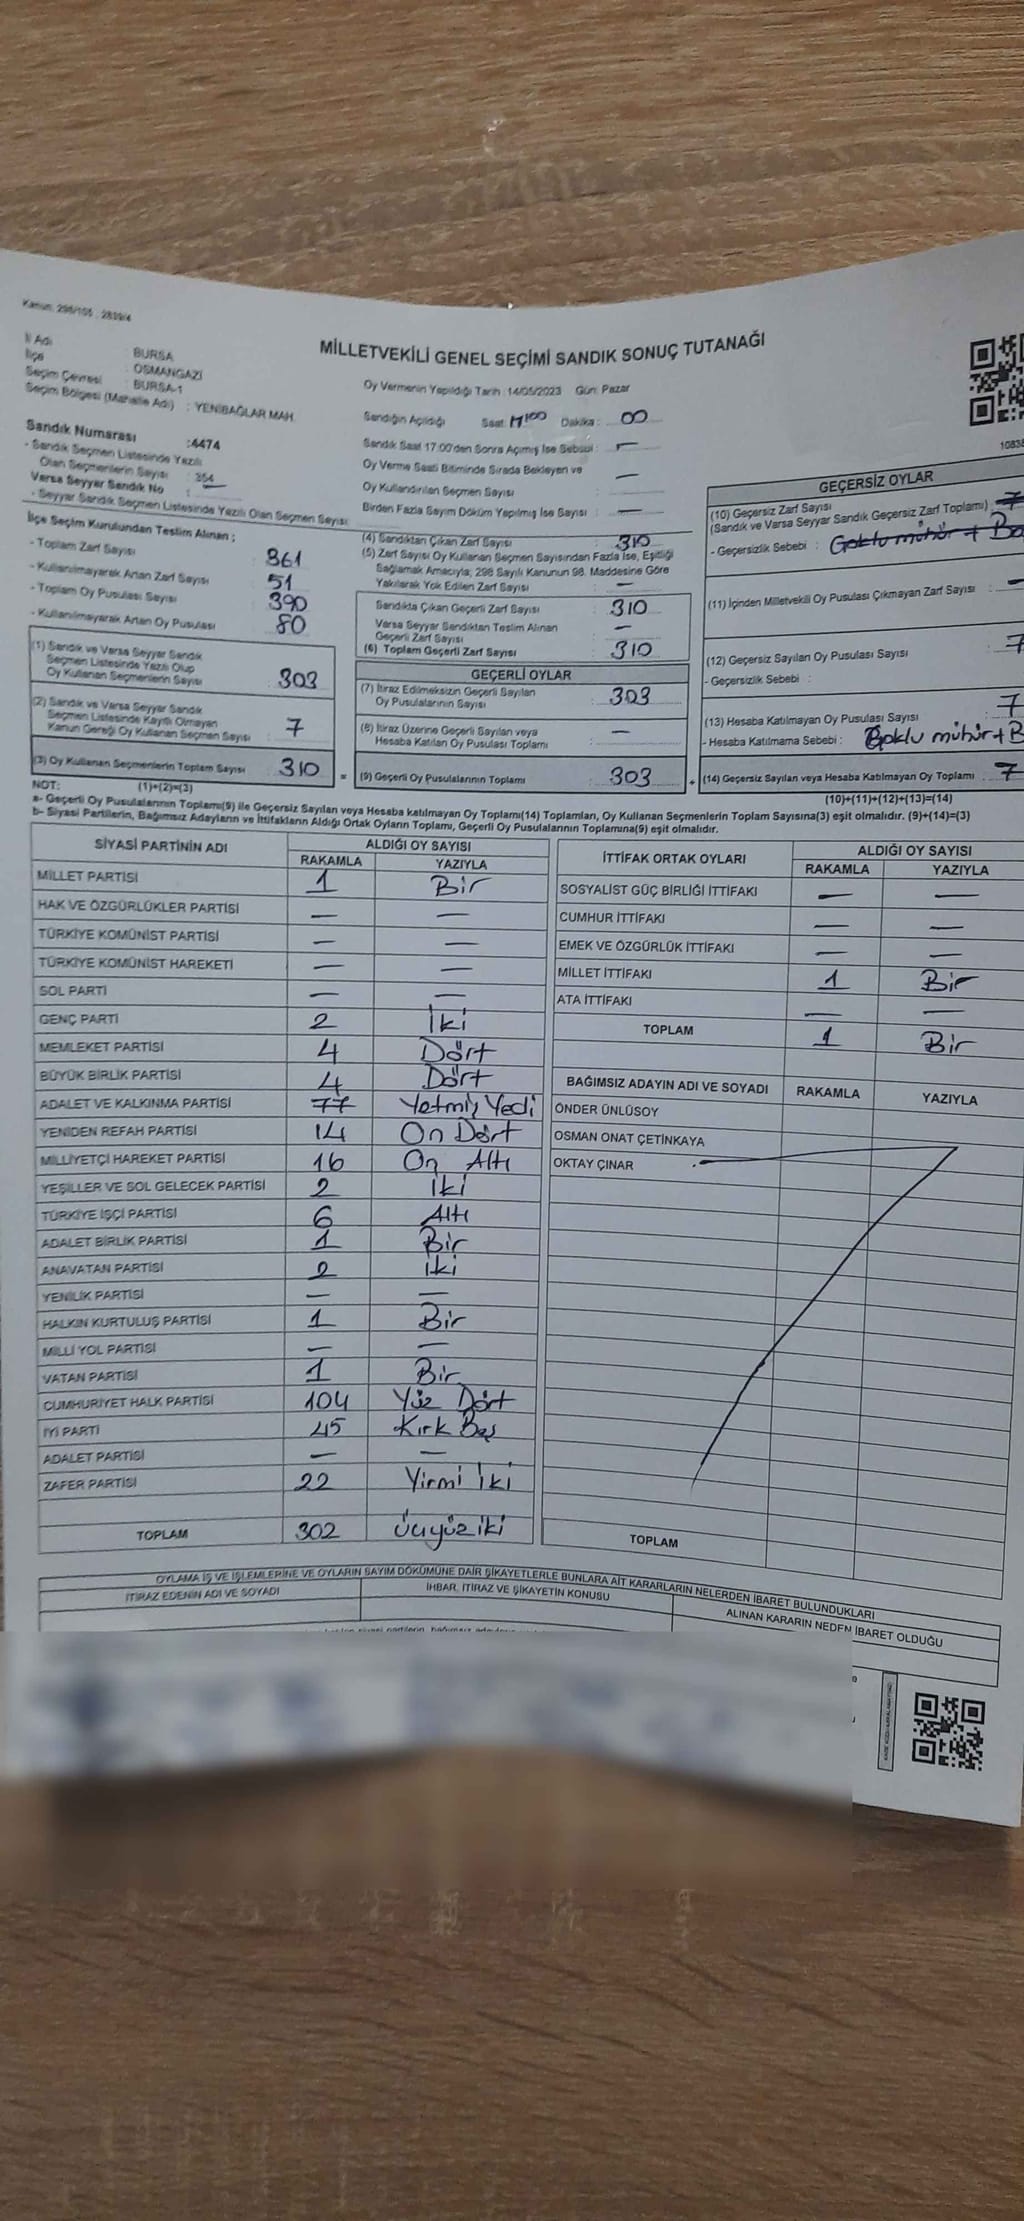 Kanun: 298/105 : 2839/4
MİLLETVEKİLİ GENEL SEÇİMİ SANDIK SONUÇ TUTANAĞI
İl Adı : BURSA
İlçe : OSMANGAZİ
Seçim Çevresi : BURSA-1
Seçim Bölgesi (Mahalle Adı) : YENİBAĞLAR MAH.
Sandık Numarası :4474
- Sandık Seçmen Listesinde Yazılı
Olan Seçmenlerin Sayısı : 354
Varsa Seyyar Sandık No :
- Seyyar Sandık Seçmen Listesinde Yazılı Olan Seçmen Sayısı
Oy Vermenin Yapıldığı Tarih : 14/05/2023 Gün: Pazar
Sandığın Açıldığı Saat: Dakika : 00
Sandık Saat 17:00'den Sonra Açılmış İse Sebebi : —
Oy Verme Saati Bitiminde Sırada Bekleyen ve
Oy Kullandırılan Seçmen Sayısı —
Birden Fazla Sayım Döküm Yapılmış İse Sayısı : —
İlçe Seçim Kurulundan Teslim Alınan ;
- Toplam Zarf Sayısı : 361
- Kullanılmayarak Artan Zarf Sayısı : 51
- Toplam Oy Pusulası Sayısı : 390
- Kullanılmayarak Artan Oy Pusulası : 80
(1) Sandık ve Varsa Seyyar Sandık
Seçmen Listesinde Yazılı Olup
Oy Kullanan Seçmenlerin Sayısı : 303
(2) Sandık ve Varsa Seyyar Sandık
Seçmen Listesinde Kayıtlı Olmayan
Kanun Gereği Oy Kullanan Seçmen Sayısı : 7
(3) Oy Kullanan Seçmenlerin Toplam Sayısı : 310
(1)+(2)=(3)
(4) Sandıktan Çıkan Zarf Sayısı : 310
(5) Zarf Sayısı Oy Kullanan Seçmen Sayısından Fazla İse, Eşitliği
Sağlamak Amacıyla; 298 Sayılı Kanunun 98. Maddesine Göre
Yakılarak Yok Edilen Zarf Sayısı : —
Sandıkta Çıkan Geçerli Zarf Sayısı : 310
Varsa Seyyar Sandıktan Teslim Alınan
Geçerli Zarf Sayısı : —
(6) Toplam Geçerli Zarf Sayısı : 310
GEÇERLİ OYLAR
(7) İtiraz Edilmeksizin Geçerli Sayılan
Oy Pusulalarının Sayısı : 303
(8) İtiraz Üzerine Geçerli Sayılan veya
Hesaba Katılan Oy Pusulası Toplamı : —
= (9) Geçerli Oy Pusulalarının Toplamı : 303
GEÇERSİZ OYLAR
(10) Geçersiz Zarf Sayısı
(Sandık ve Varsa Seyyar Sandık Geçersiz Zarf Toplamı) : 7
- Geçersizlik Sebebi :
(11) İçinden Milletvekili Oy Pusulası Çıkmayan Zarf Sayısı : —
(12) Geçersiz Sayılan Oy Pusulası Sayısı : 7
- Geçersizlik Sebebi :
(13) Hesaba Katılmayan Oy Pusulası Sayısı : 7
- Hesaba Katılmama Sebebi : mühür + B
+ (14) Geçersiz Sayılan veya Hesaba Katılmayan Oy Toplamı : 7
(10)+(11)+(12)+(13)=(14)
NOT:
a- Geçerli Oy Pusulalarının Toplamı(9) ile Geçersiz Sayılan veya Hesaba katılmayan Oy Toplamı(14) Toplamları, Oy Kullanan Seçmenlerin Toplam Sayısına(3) eşit olmalıdır. (9)+(14)=(3)
b- Siyasi Partilerin, Bağımsız Adayların ve İttifakların Aldığı Ortak Oyların Toplamı, Geçerli Oy Pusulalarının Toplamına(9) eşit olmalıdır.
SİYASİ PARTİNİN ADI ALDIĞI OY SAYISI
RAKAMLA YAZIYLA
MİLLET PARTİSİ 1 Bir
HAK VE ÖZGÜRLÜKLER PARTİSİ — —
TÜRKİYE KOMÜNİST PARTİSİ — —
TÜRKİYE KOMÜNİST HAREKETİ — —
SOL PARTİ — —
GENÇ PARTİ 2 İki
MEMLEKET PARTİSİ 4 Dört
BÜYÜK BİRLİK PARTİSİ 4 Dört
ADALET VE KALKINMA PARTİSİ 77 Yetmiş Yedi
YENİDEN REFAH PARTİSİ 14 On Dört
MİLLİYETÇİ HAREKET PARTİSİ 16 On Altı
YEŞİLLER VE SOL GELECEK PARTİSİ 2 İki
TÜRKİYE İŞÇİ PARTİSİ 6 Altı
ADALET BİRLİK PARTİSİ 1 Bir
ANAVATAN PARTİSİ 2 İki
YENİLİK PARTİSİ — —
HALKIN KURTULUŞ PARTİSİ 1 Bir
MİLLİ YOL PARTİSİ — —
VATAN PARTİSİ 1 Bir
CUMHURİYET HALK PARTİSİ 104 Yüz Dört
İYİ PARTİ 45 Kırk Beş
ADALET PARTİSİ — —
ZAFER PARTİSİ 22 Yirmi İki
TOPLAM 302 Üçyüz iki
İTTİFAK ORTAK OYLARI ALDIĞI OY SAYISI
RAKAMLA YAZIYLA
SOSYALİST GÜÇ BİRLİĞİ İTTİFAKI — —
CUMHUR İTTİFAKI — —
EMEK VE ÖZGÜRLÜK İTTİFAKI — —
MİLLET İTTİFAKI 1 Bir
ATA İTTİFAKI — —
TOPLAM 1 Bir
BAĞIMSIZ ADAYIN ADI VE SOYADI RAKAMLA YAZIYLA
ÖNDER ÜNLÜSOY
OSMAN ONAT ÇETİNKAYA
OKTAY ÇINAR
TOPLAM
OYLAMA İŞ VE İŞLEMLERİNE VE OYLARIN SAYIM DÖKÜMÜNE DAİR ŞİKAYETLERLE BUNLARA AİT KARARLARIN NELERDEN İBARET BULUNDUKLARI
İTİRAZ EDENİN ADI VE SOYADI İHBAR, İTİRAZ VE ŞİKAYETİN KONUSU ALINAN KARARIN NEDEN İBARET OLDUĞU